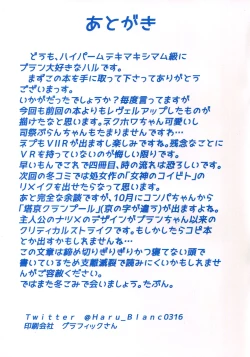 あとがき
どうも、ハイパームテキマキシマム級に
ブラン大好きなハルです。
まずこの本を手に取って下さってありがとう
ございまっす。
いかがだったでしょうか?毎度言ってますが
今回も前回の本よりもレヴェルアップしたものが
描けたなと思います。ネクホワちゃん可愛いし
司祭ぶらんちゃんもたまりませんですわ…
ネプもVⅡRが出ますし楽しみですね。残念なことに
VRを持っていないのが悔しい限りです。
早いもんでこれで四冊目、時の流れは恐ろしいです。
次回の冬コミでは処女作の「女神のコイビト」の
リメイクを出せたらなって思います。
あと完全な余談ですが、10月にコンパちゃんから
「塔京クランプール」(京の字が違う)が出ますよね。
主人公のナツメのデザインがブランちゃん以来の
クリティカルストライクです。もしかしたらコピ本
とか出すかもしれませんね…
この文章は締め切りぎりぎりかつ寝てない頭で
書いているため支離滅裂で読みにくいかもしれません
がご容赦ください。
ではまた冬コミで会いましょう。たぶん。
Twitter @Haru_Blanc0316
印刷会社 グラフィックさん